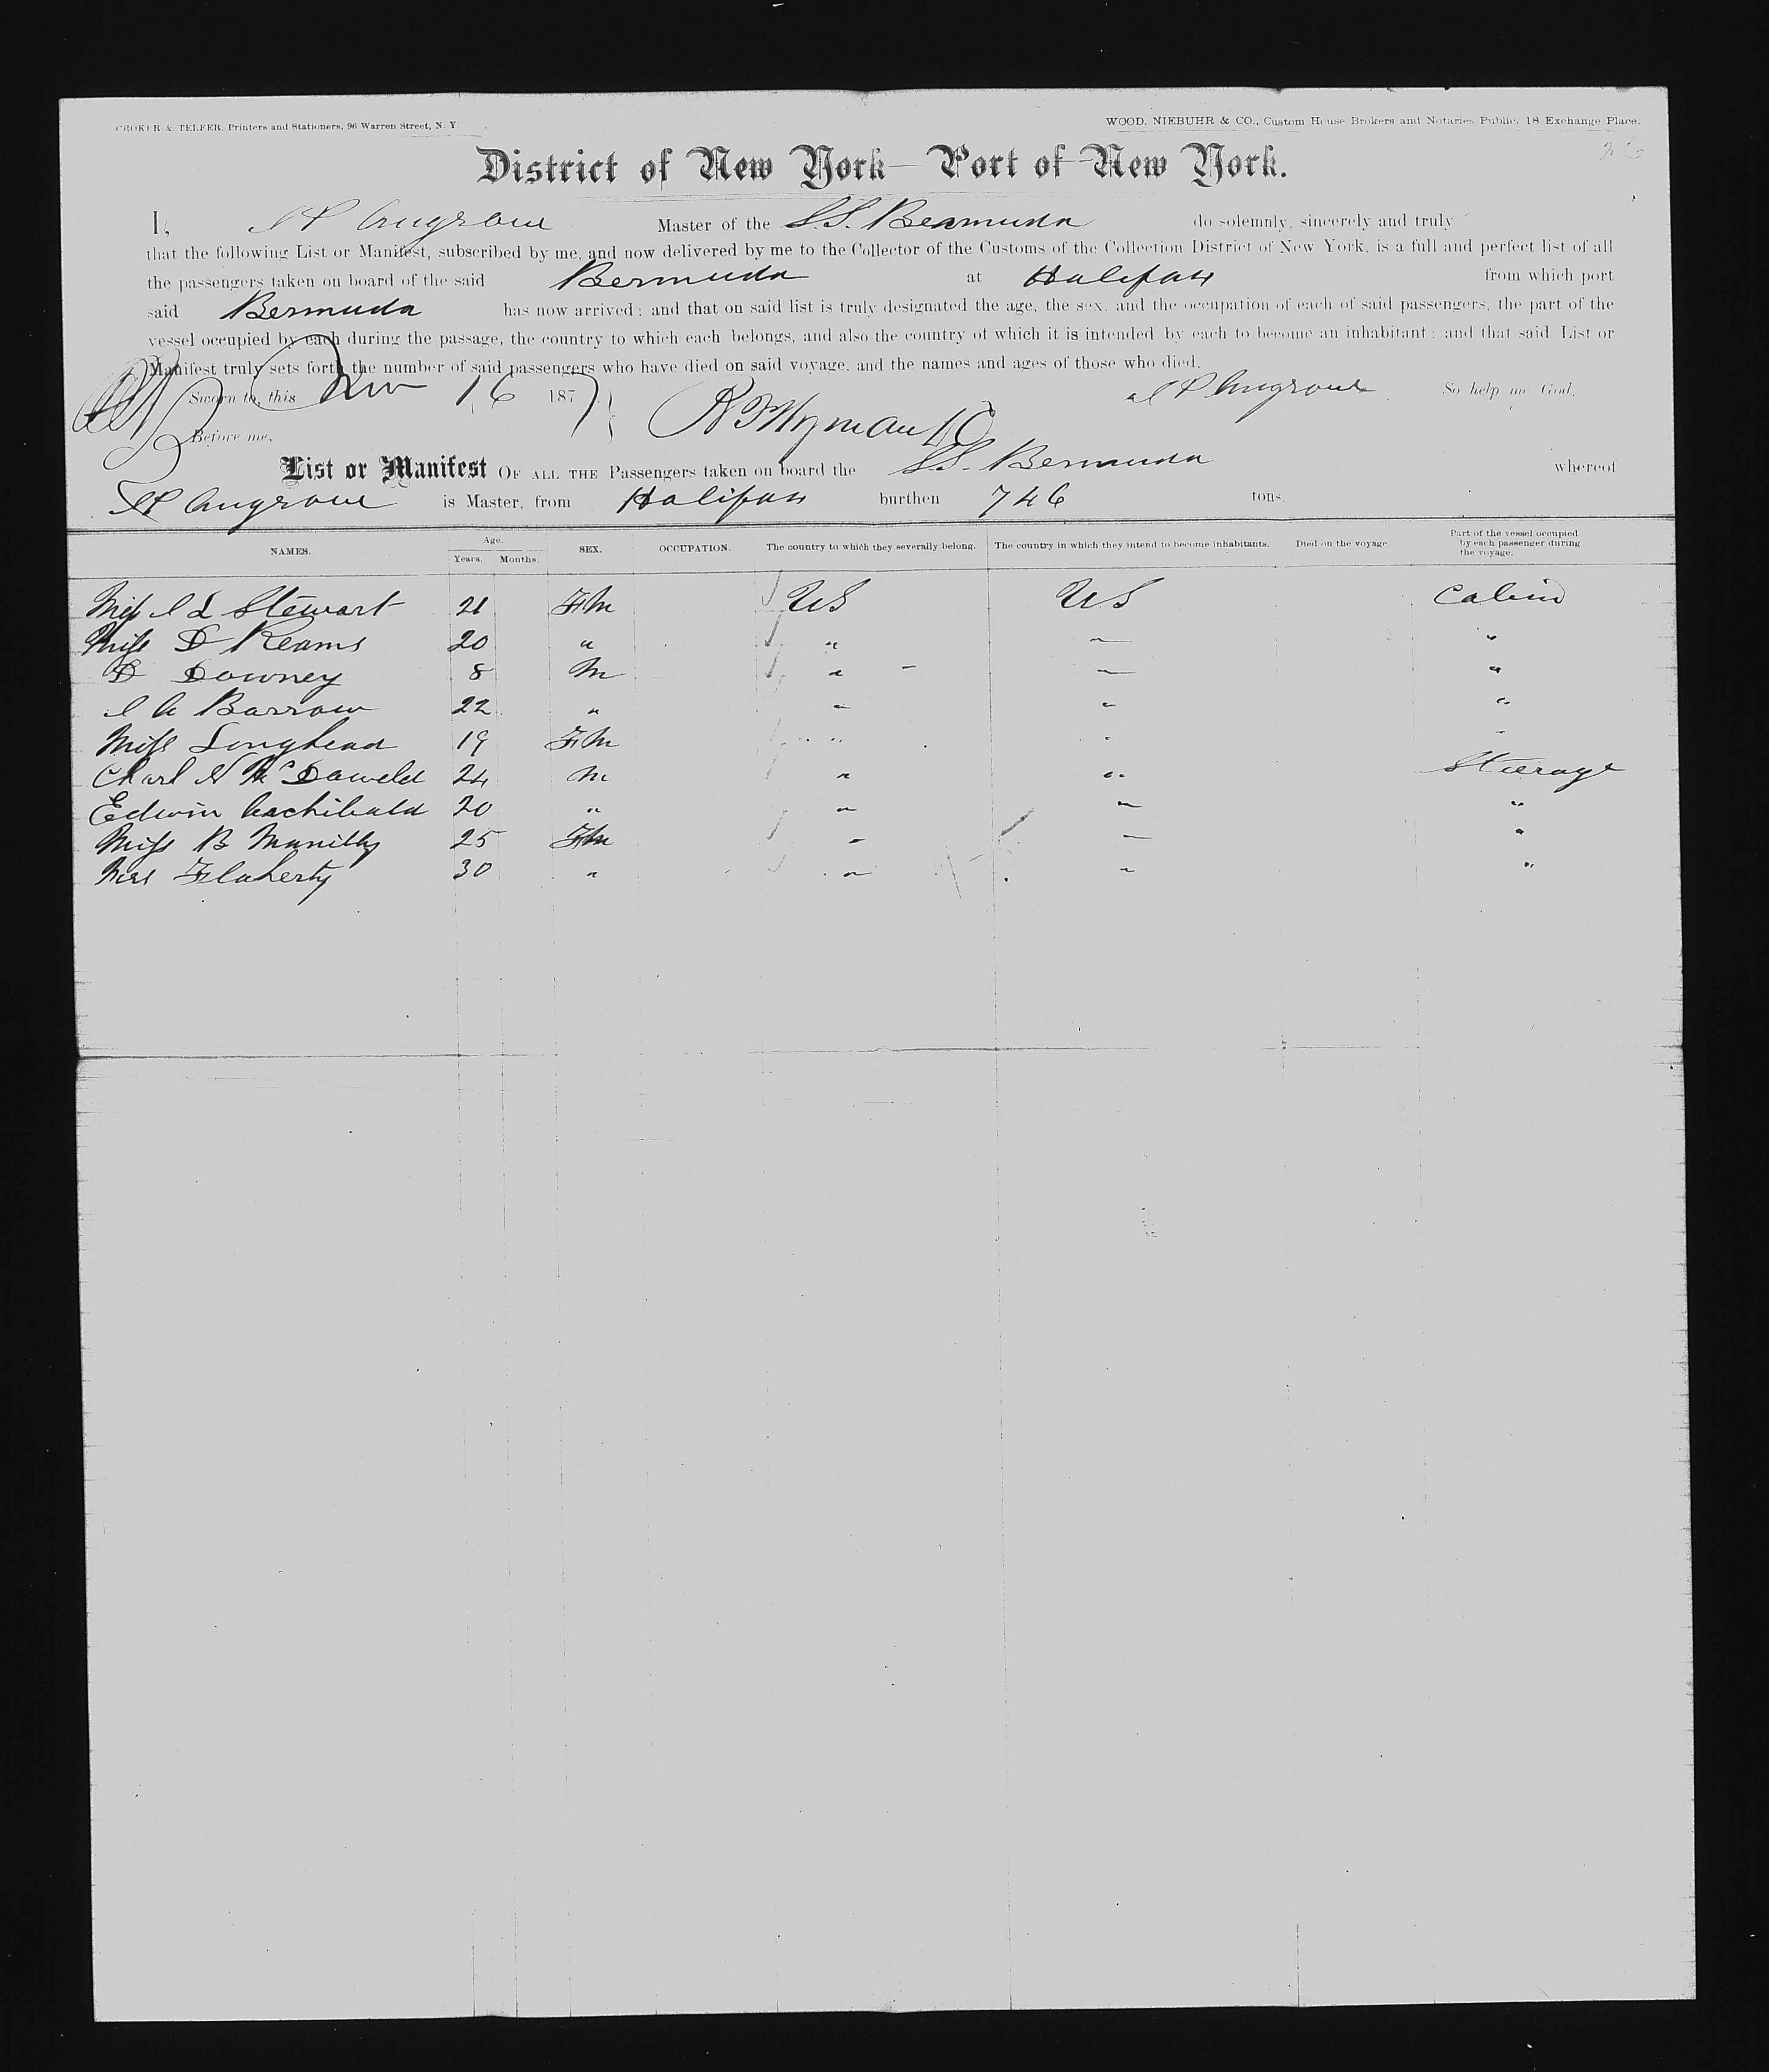 CROKER & TELFER, Printers and Stationers, 96 Warren Street, N. Y.
WOOD, NIEBUHR & CO., Custom House Brokers and Notaries Public, 18 Exchange Place.
District of New York—Port of New York.
I, Master of the S.S. Bermuda do solemnly, sincerely and truly
that the following List or Manifest, subscribed by me, and now delivered by me to the Collector of the Customs of the Collection District of New York, is a full and perfect list of all
the passengers taken on board of the said Bermuda at Halifax from which port
said Bermuda has now arrived; and that on said list is truly designated the age, the sex, and the occupation of each of said passengers, the part of the
vessel occupied by each during the passage, the country to which each belongs, and also the country of which it is intended by each to become an inhabitant; and that said List or
Manifest truly sets forth the number of said passengers who have died on said voyage, and the names and ages of those who died.
Sworn to, this Nov 16 1877 So help me God.
Before me,
List or Manifest OF ALL THE Passengers taken on board the S.S. Bermuda whereof
is Master, from Halifax burthen 746 tons.
NAMES. Age. Years. Months. SEX. OCCUPATION. The country to which they severally belong. The country in which they intend to become inhabitants. Died on the voyage. Part of the vessel occupied by each passenger during the voyage.
Miss L Stewart 21 Fm US US Cabin
Miss D Keams 20 " " " "
D Downey 8 M " " "
A Barrow 22 " " " "
Miss Longhead 19 Fm " " "
Charl N McDaweld 24 M " " Steerage
Edwin Archibald 20 " " " "
Miss B Manilly 25 Fm " " "
Mrs Flaherty 30 " " " "